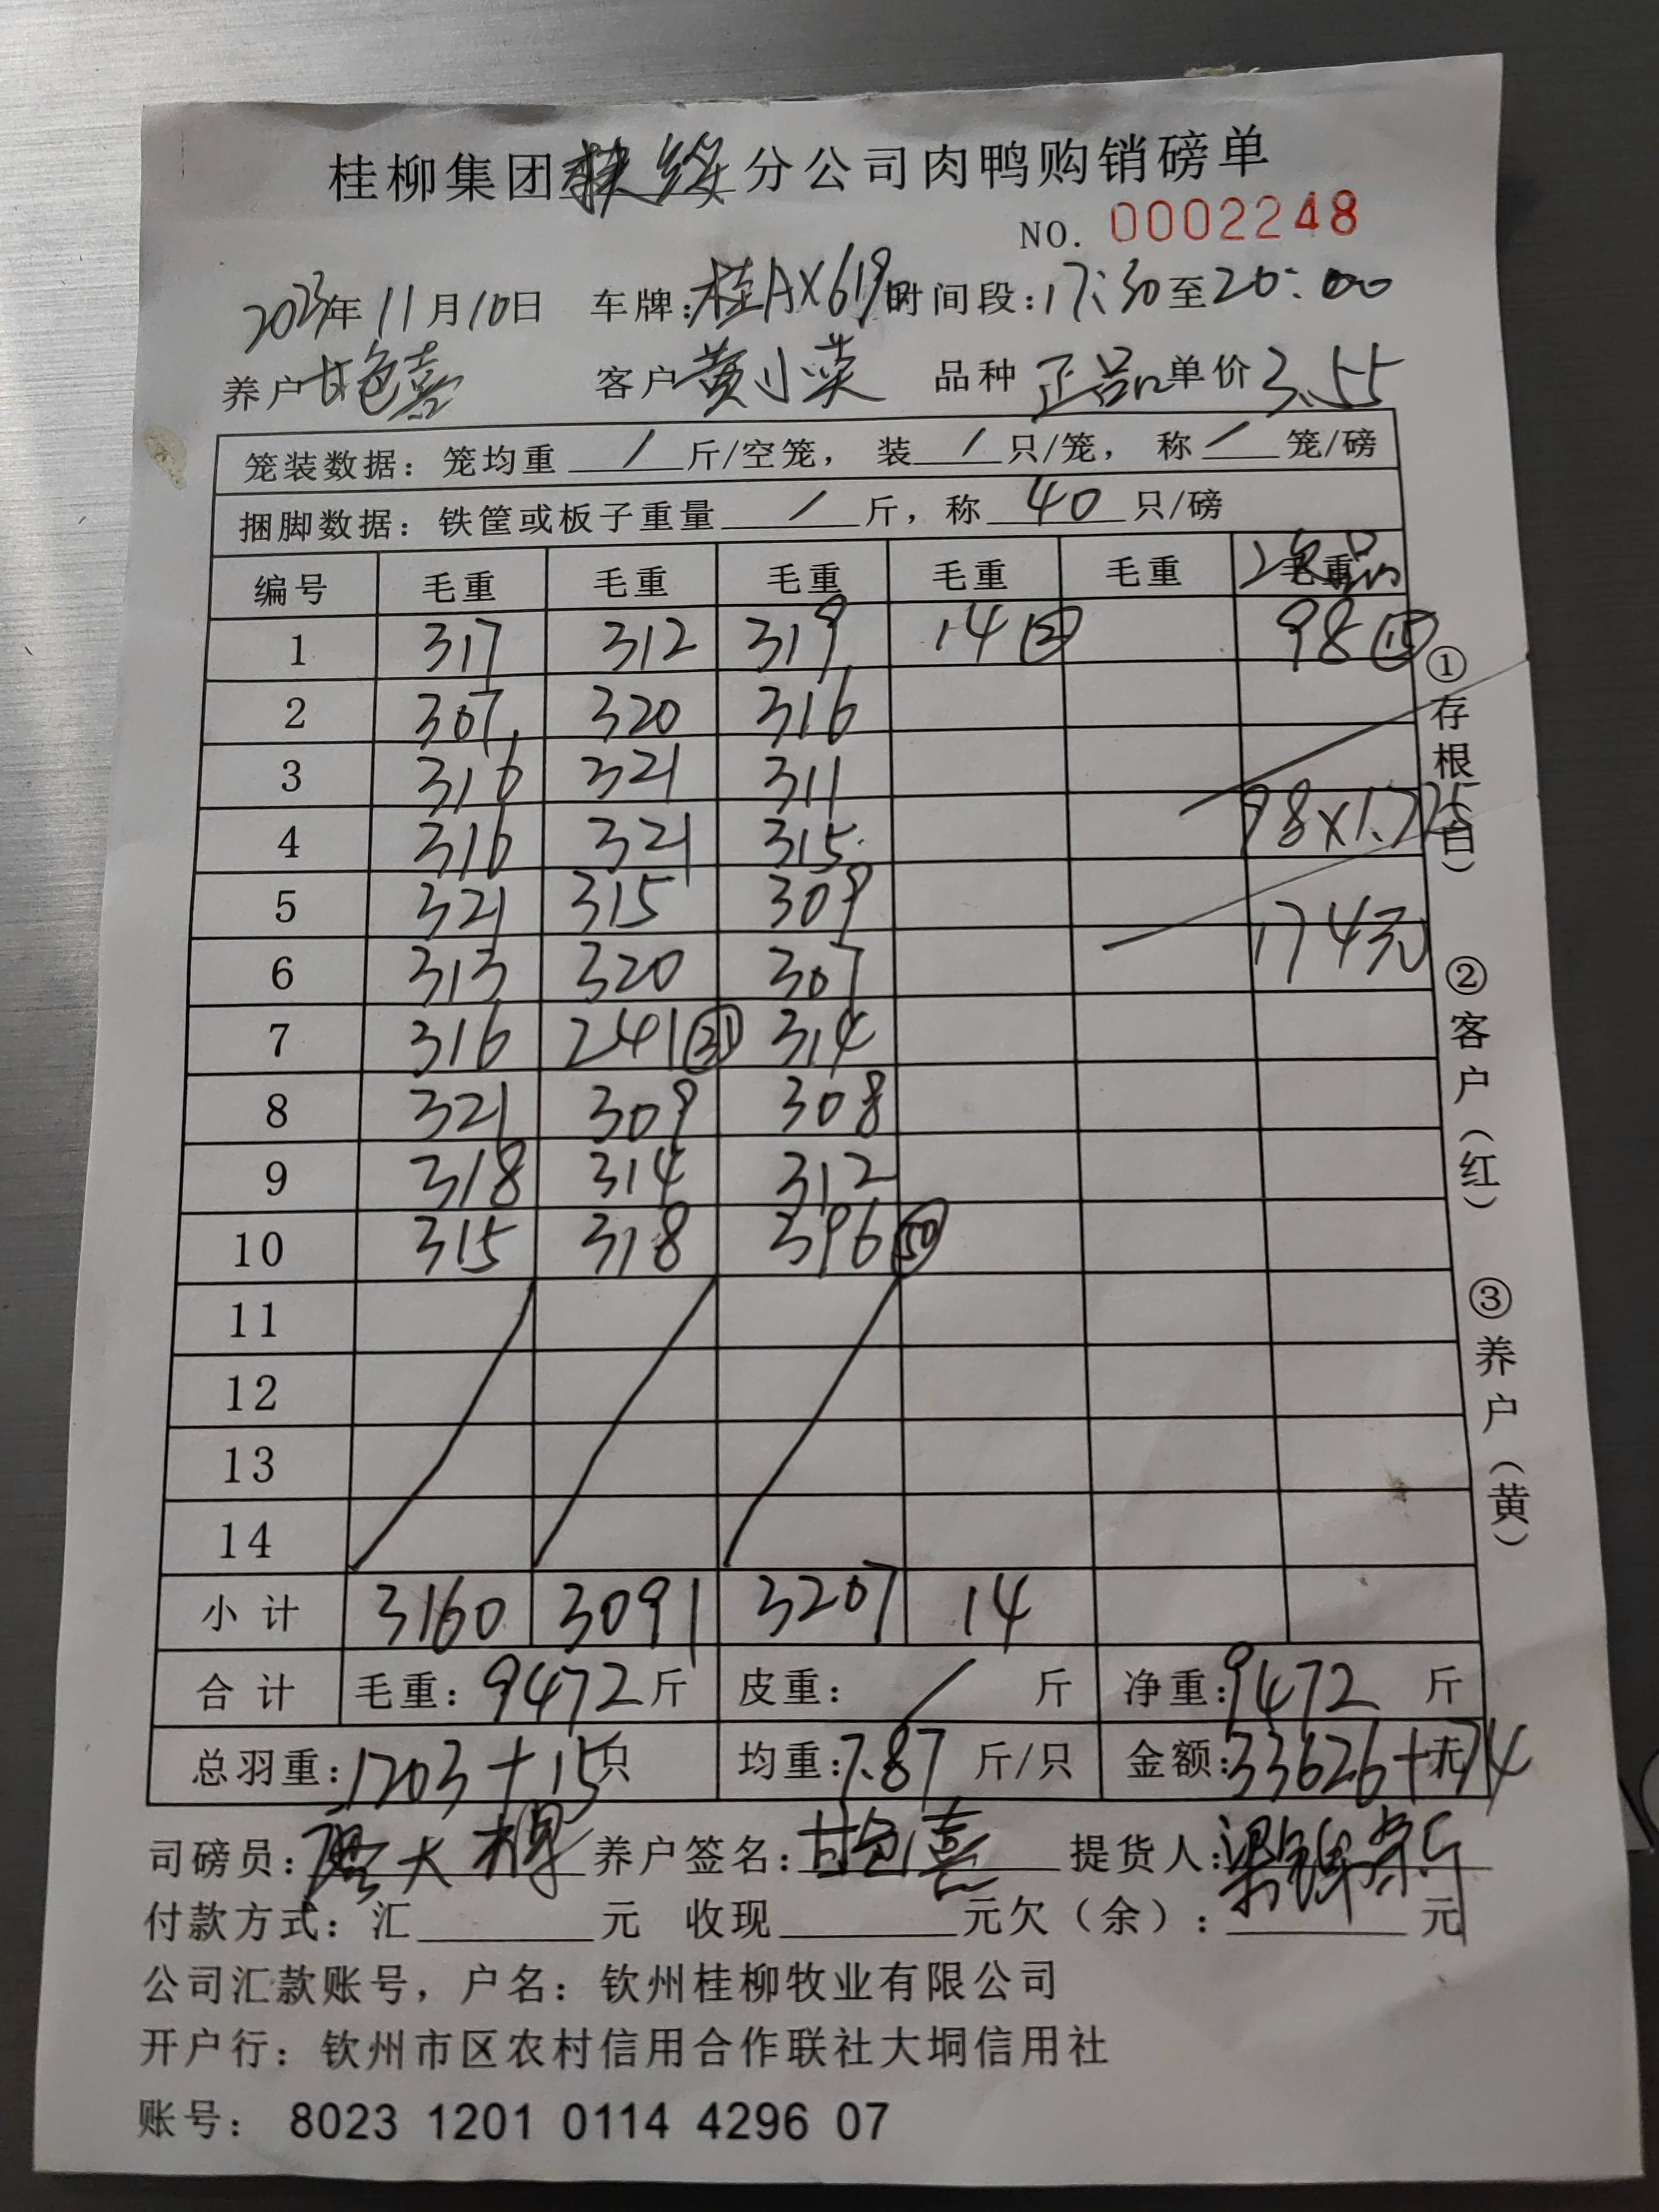 桂柳集团扶绥分公司肉鸭购销磅单
NO. 0002248
2023年11月10日 车牌:桂AX619 时间段:17:30至20:00
养户甘色喜 客户黄小英 品种正品单价3.55
笼装数据: 笼均重 / 斤/空笼, 装 / 只/笼, 称 / 笼/磅
捆脚数据: 铁筐或板子重量 / 斤, 称 40 只/磅
编号 毛重 毛重 毛重 毛重 毛重 次品
1 317 312 319 14② 98⑮
2 307 320 316
3 316 321 311
4 316 321 315 98×1.775
5 321 315 309 174元
6 313 320 307
7 316 241㉛ 314
8 321 309 308
9 318 314 312
10 315 318 396㊿
11
12
13
14
小计 3160 3091 3207 14
合计 毛重: 9472斤 皮重: / 斤 净重: 9472 斤
总羽重: 1203+15只 均重: 7.87 斤/只 金额: 33626+174元
司磅员: 大 养户签名: 甘色喜 提货人: 梁
付款方式: 汇 元 收现 元欠(余): 元
公司汇款账号, 户名: 钦州桂柳牧业有限公司
开户行: 钦州市区农村信用合作联社大垌信用社
账号: 8023 1201 0114 4296 07
①存根(白) ②客户(红) ③养户(黄)